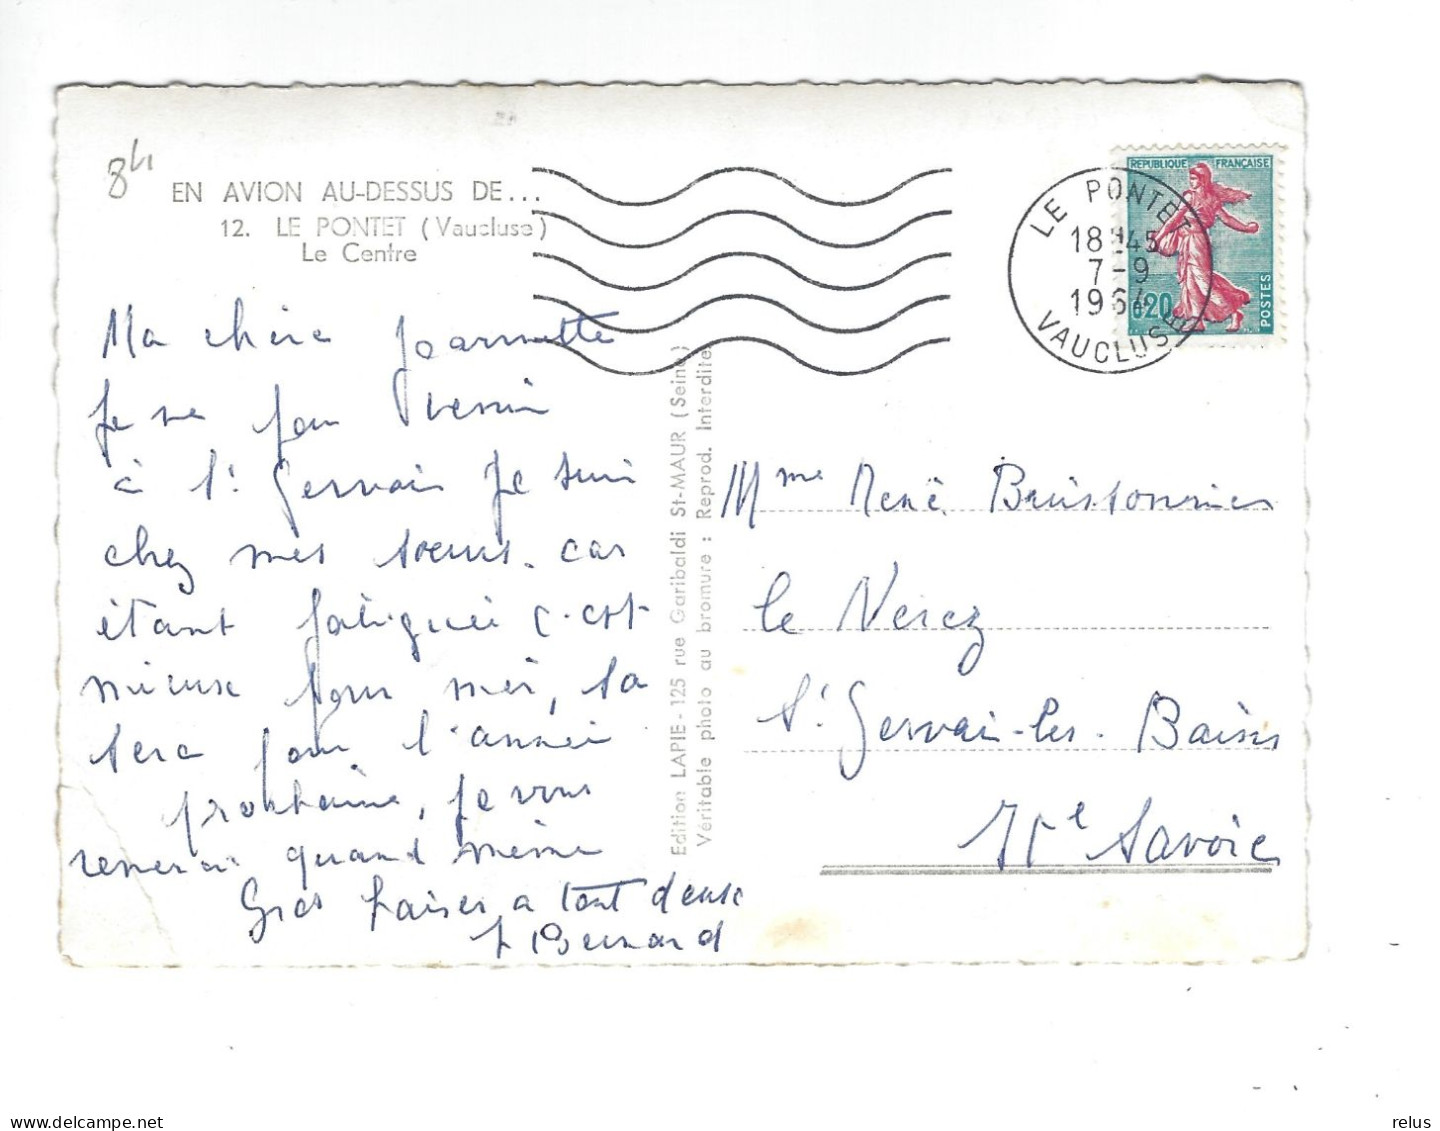 84
EN AVION AU-DESSUS DE...
12. LE PONTET (Vaucluse)
Le Centre
Ma chère Jeannette
Je ne peu venir
à St Gervais Je suis
chez mes soeurs. car
étant fatiguée c'est
mieux pour moi, sa
sera pour l'année
prochaine, je vous
remerci quand même
Gros baiser a tout deux
Bernard
Edition LAPIE - 125 rue Garibaldi St-MAUR (Seine)
Véritable photo au bromure : Reprod. Interdite
REPUBLIQUE FRANÇAISE
0,20
POSTES
LE PONTET
18H45
7-9
1964
VAUCLUSE
Mme René Buissonnier
le Nerez
St Gervais-les-Bains
Hte Savoie
delcampe.net
relus